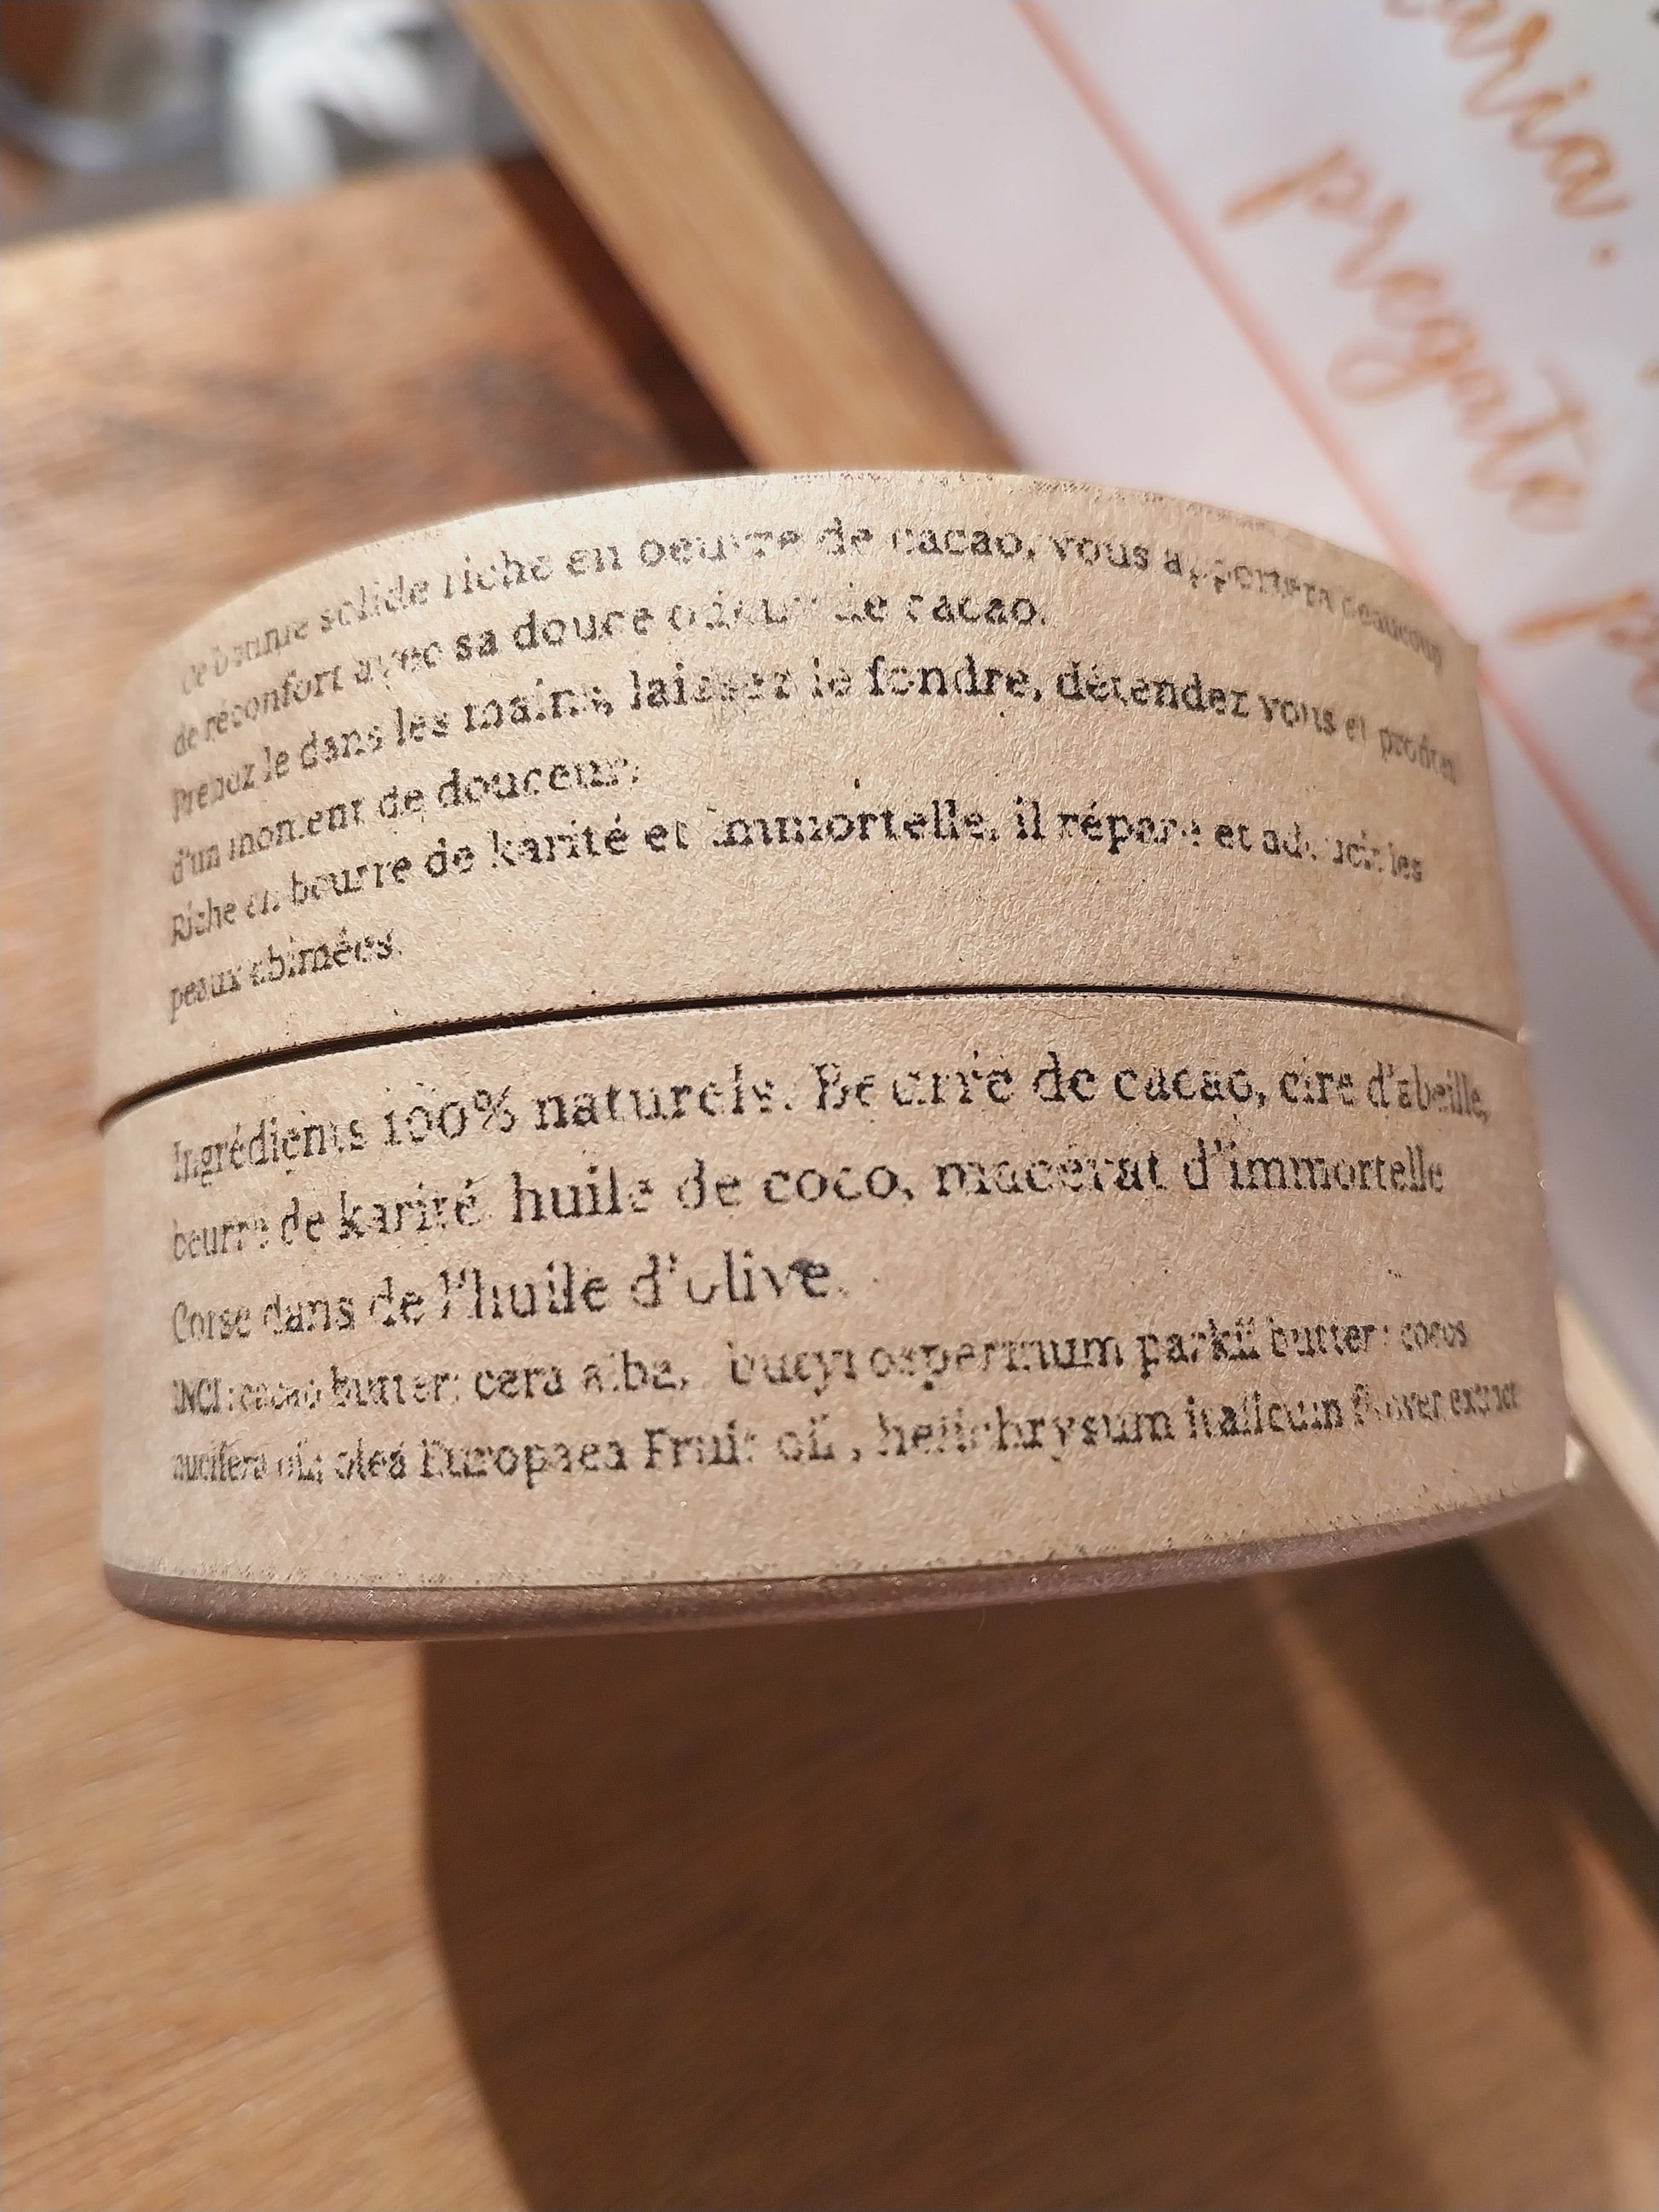 aria.
pregate
Ce baume solide riche en beurre de cacao, vous apportera beaucoup
de réconfort avec sa douce odeur de cacao.
Prenez le dans les mains, laissez le fondre, détendez vous et profitez
d'un moment de douceur.
Riche en beurre de karité et immortelle, il répare et adoucit les
peaux abimées.
Ingrédients 100% naturels. Beurre de cacao, cire d'abeille,
beurre de karité, huile de coco, macérat d'immortelle
Corse dans de l'huile d'olive.
INCI : cacao butter; cera alba, butyrospermum parkii butter; cocos
nucifera oil; olea Europaea Fruit oil, helichrysum italicum flower extract